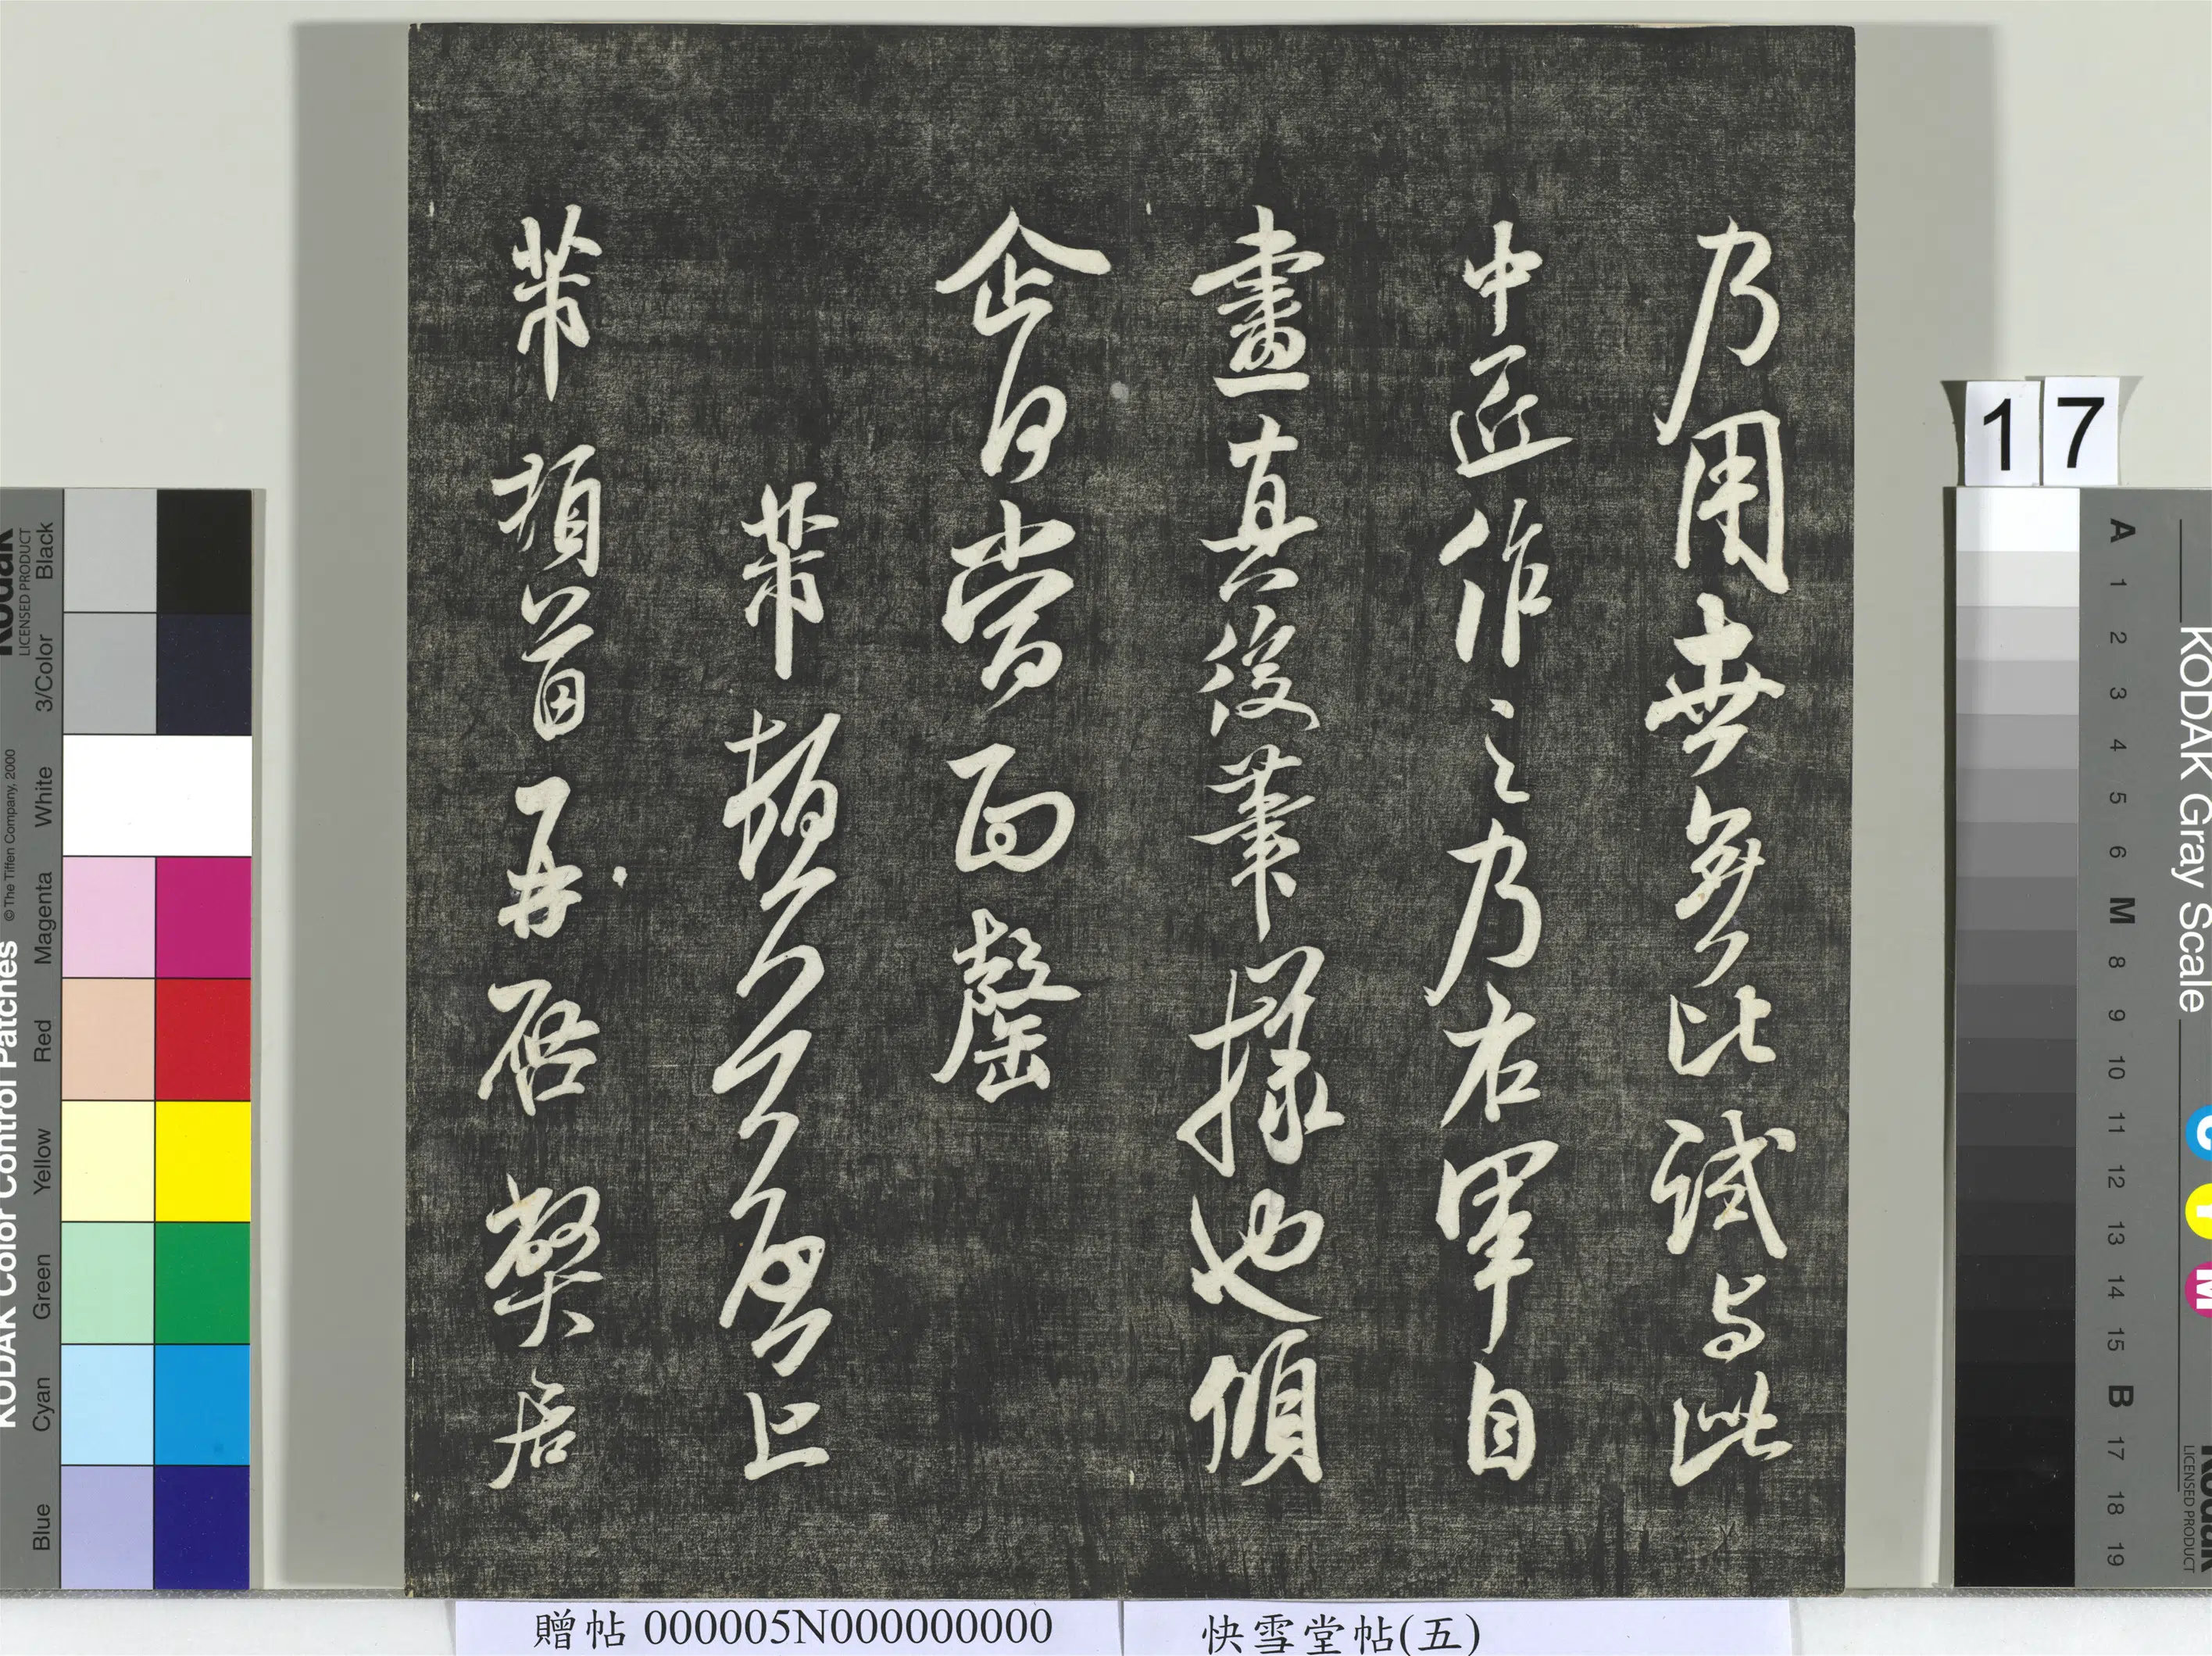 乃用世無比試与此
中匠作之乃右軍自
畫真後筆樣也傾
企日當面罄
芾頓首再啓上
芾頓首再啓弊居
17
KODAK Color Control Patches © The Tiffen Company, 2000
Kodak
LICENSED PRODUCT
Black
3/Color
White
Magenta
Red
Yellow
Green
Cyan
Blue
KODAK Gray Scale
C Y M
Kodak
LICENSED PRODUCT
A 1 2 3 4 5 6 M 8 9 10 11 12 13 14 15 B 17 18 19
贈帖 000005N000000000
快雪堂帖(五)